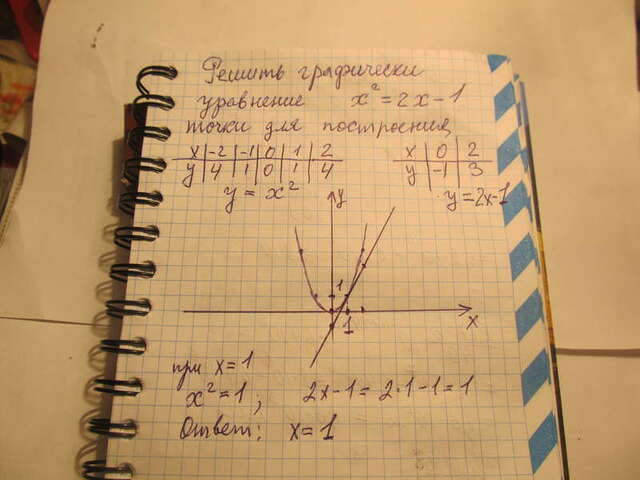 Решить графически
уравнение x² = 2x - 1
точки для построения
x | -2 | -1 | 0 | 1 | 2
y | 4 | 1 | 0 | 1 | 4
y = x²
x | 0 | 2
y | -1 | 3
y = 2x-1
y
1
1
x
при x = 1
x² = 1; 2x-1 = 2·1-1 = 1
Ответ: x = 1